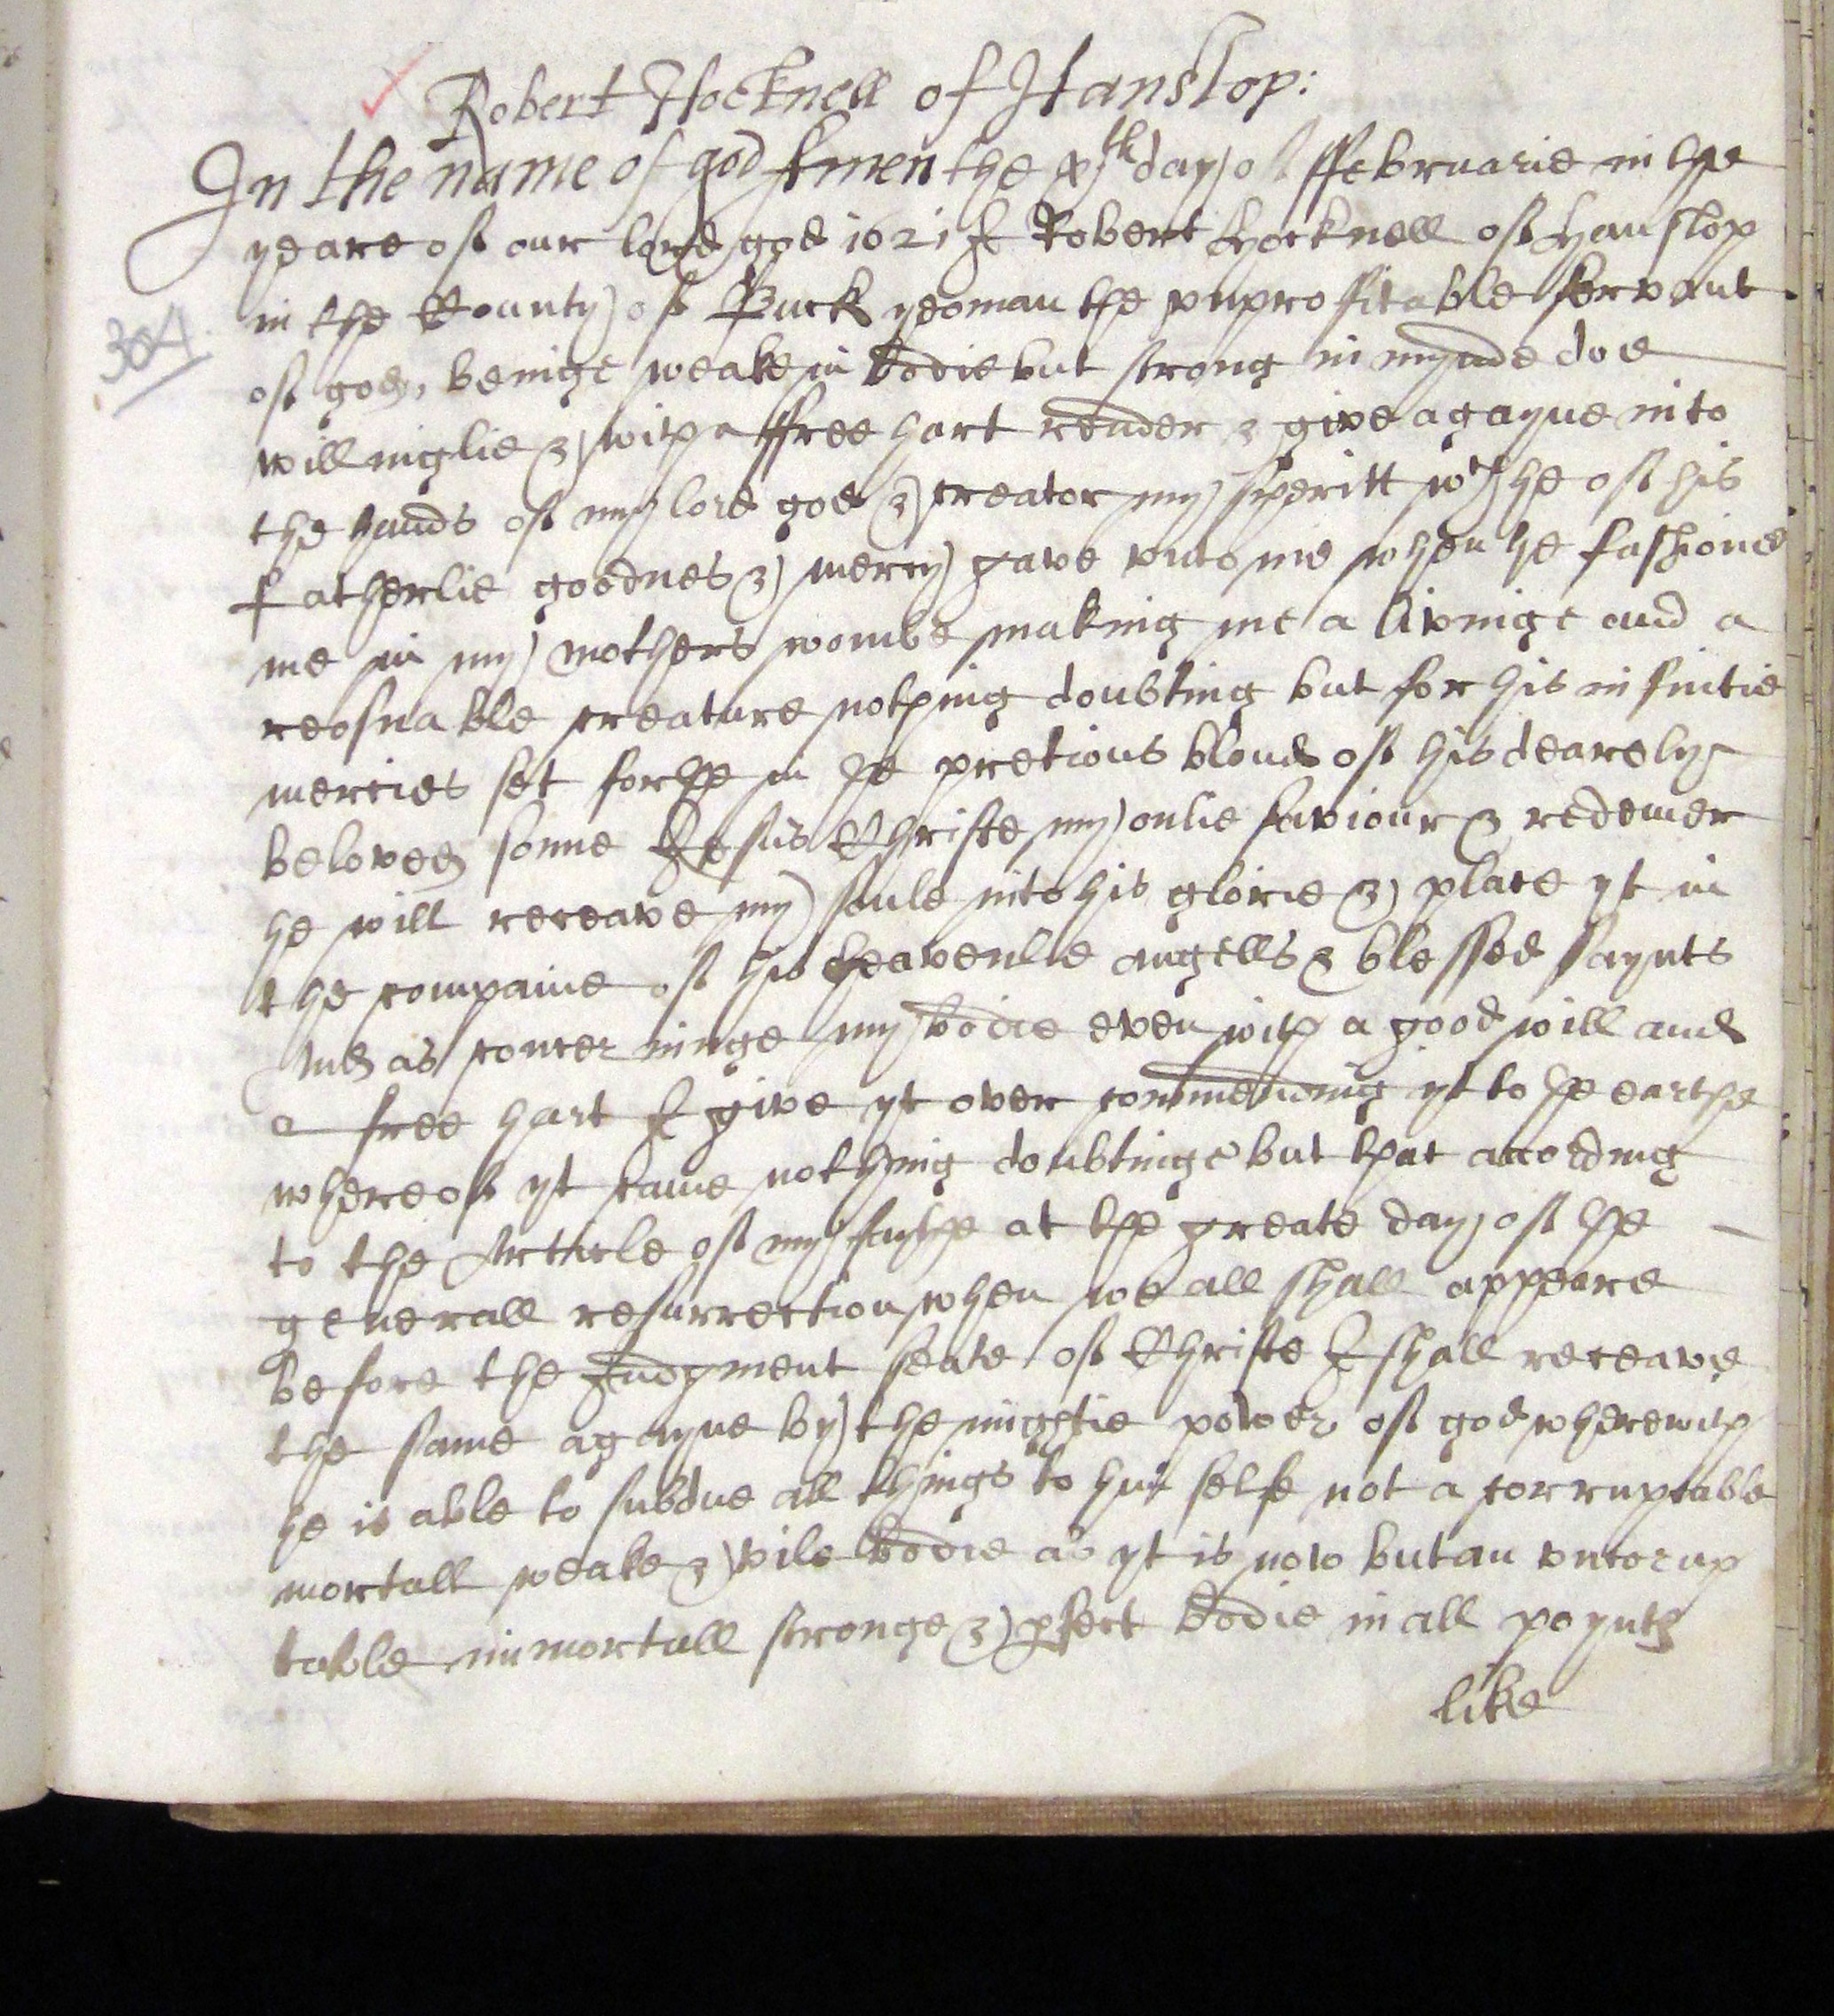 Robert Hocknell of Hanslop:
In the name of god Amen the xjth day of ffebruarie in the
yeare of our lord god 1621 I Robert Hocknell of Hanslop
in the County of Buck yeoman the vnproffitable servant
304
of god, beinge weake in bodie but strong in mynde doe
willinglie & with a ffree hart render & give agayne into
the hands of my lord god & creator my speritt wch he of his
fatherlie goodnes & mercy gave vnto me when he fashioned
me in my mothers wombe making me a livinge and a
reosnable creature nothing doubting but for his infinitie
mercies set forthe in the pretious bloud of his dearely
beloved sonne Jesus Christe my onlie saviour & redemer
he will receave my soule into his glorie & place yt in
the companie of his heavenlie angells & blessed saynts
And as concerninge my bodie even with a good will and
a free hart I give yt over commending yt to the earthe
whereof yt came nothing doubtinge but that according
to the Article of my faythe at the greate day of the
generall resurrection when we all shall appeare
before the Judgment seate of Christe I shall receave
the same agayne by the mightie power of god wherewith
he is able to subdue all things to him selfe not a corruptable
mortall weake & vile bodie as yt is now but an vncorup
table immortall stronge & pfect bodie in all poynts
like